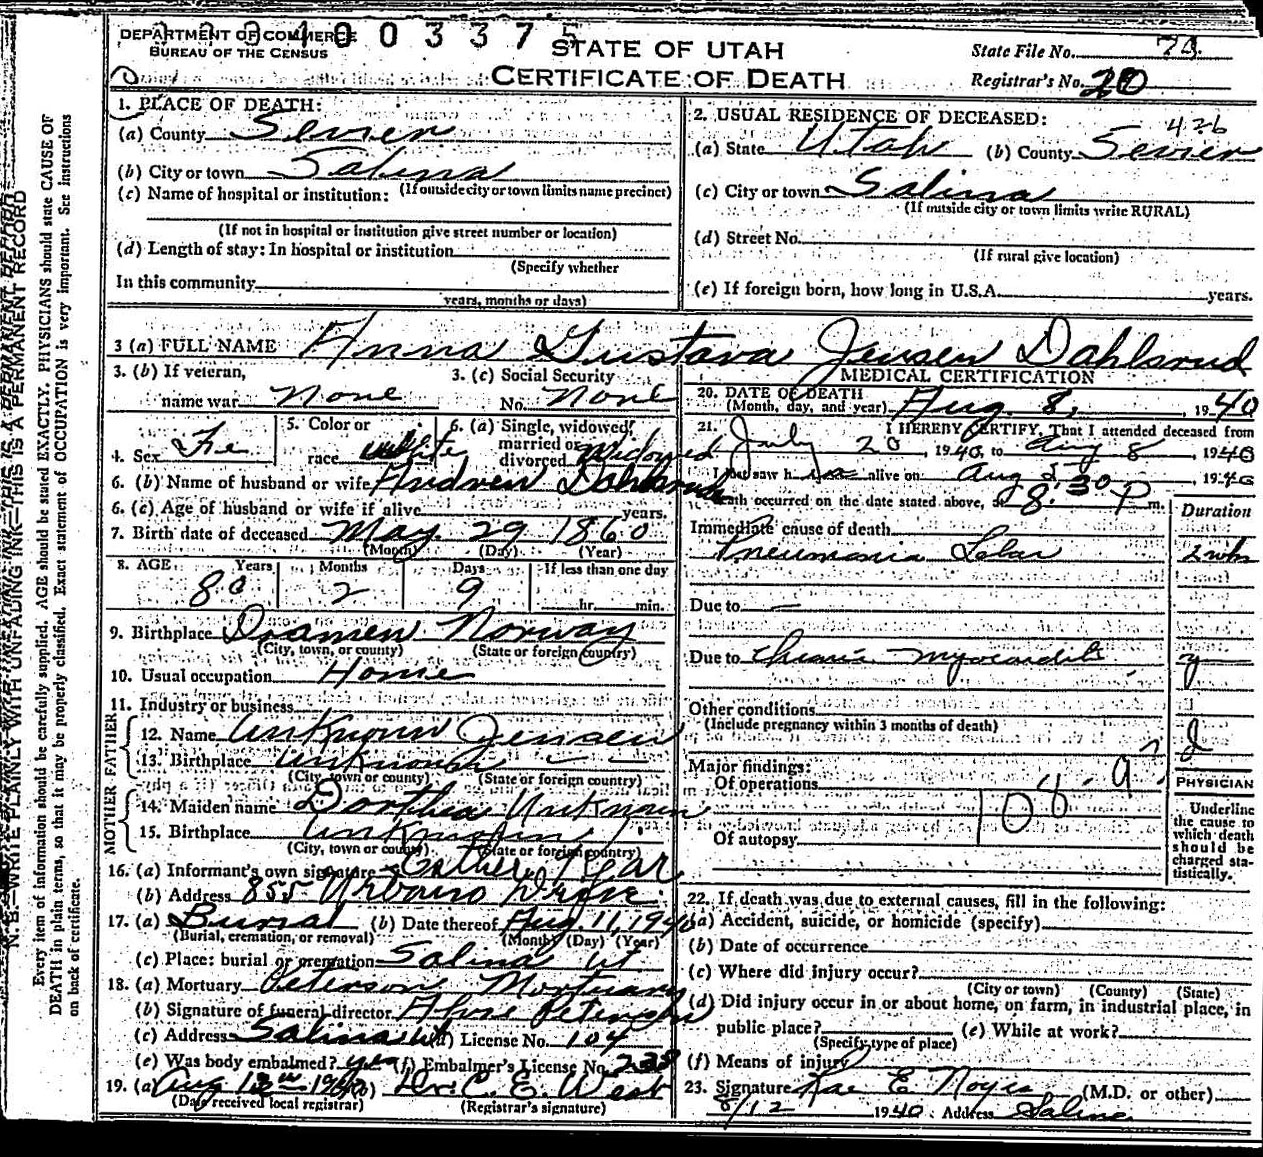 DEPARTMENT OF COMMERCE
BUREAU OF THE CENSUS
003375
STATE OF UTAH
CERTIFICATE OF DEATH
State File No. 73
Registrar's No. 20
N. B.—WRITE PLAINLY WITH UNFADING INK—THIS IS A PERMANENT RECORD
Every item of information should be carefully supplied. AGE should be stated EXACTLY. PHYSICIANS should state CAUSE OF
DEATH in plain terms, so that it may be properly classified. Exact statement of OCCUPATION is very important. See instructions
on back of certificate.
1. PLACE OF DEATH:
(a) County Sevier
(b) City or town Salina
(If outside city or town limits name precinct)
(c) Name of hospital or institution:
(If not in hospital or institution give street number or location)
(d) Length of stay: In hospital or institution
(Specify whether
In this community
years, months or days)
2. USUAL RESIDENCE OF DECEASED:
426
(a) State Utah (b) County Sevier
(c) City or town Salina
(If outside city or town limits write RURAL)
(d) Street No.
(If rural give location)
(e) If foreign born, how long in U.S.A. years.
3 (a) FULL NAME Anna Gustava Jensen Dahlsrud
3. (b) If veteran, name war None
3. (c) Social Security No. None
4. Sex Fe
5. Color or race white
6. (a) Single, widowed, married or divorced widowed
6. (b) Name of husband or wife Andrew Dahlsrud
6. (c) Age of husband or wife if alive years.
7. Birth date of deceased May 29 1860
(Month) (Day) (Year)
8. AGE Years Months Days If less than one day
80 2 9 hr. min.
9. Birthplace Dramen Norway
(City, town, or county) (State or foreign country)
10. Usual occupation Home
11. Industry or business
FATHER
12. Name Unknown Jensen
13. Birthplace Unknown
(City, town or county) (State or foreign country)
MOTHER
14. Maiden name Dorthea Unknown
15. Birthplace Unknown
(City, town or county) (State or foreign country)
16. (a) Informant's own signature Esther
(b) Address 855 Urbano Drive
17. (a) Burial (b) Date thereof Aug. 11, 1940
(Burial, cremation, or removal) (Month) (Day) (Year)
(c) Place: burial or cremation Salina Ut
18. (a) Mortuary Peterson Mortuary
(b) Signature of funeral director Peterson
(c) Address Salina Ut (d) License No. 104
(e) Was body embalmed? yes (f) Embalmer's License No. 238
19. (a) Aug 12 1940 (b) Dr. C. E. West
(Date received local registrar) (Registrar's signature)
MEDICAL CERTIFICATION
20. DATE OF DEATH
(Month, day, and year) Aug. 8, 1940
21. I HEREBY CERTIFY, That I attended deceased from
July 20, 1940, to Aug 8, 1940
I last saw her alive on Aug 1940
death occurred on the date stated above, at 8:30 P m.
Duration
Immediate cause of death
Pneumonia Lobar 2 wks
Due to —
Due to Chronic myocarditis
Other conditions
(Include pregnancy within 3 months of death)
Major findings:
Of operations
108
Of autopsy
PHYSICIAN
Underline
the cause to
which death
should be
charged sta-
tistically.
22. If death was due to external causes, fill in the following:
(a) Accident, suicide, or homicide (specify)
(b) Date of occurrence
(c) Where did injury occur?
(City or town) (County) (State)
(d) Did injury occur in or about home, on farm, in industrial place, in
public place? (e) While at work?
(Specify type of place)
(f) Means of injury
23. Signature Rae E. Noyes (M.D. or other)
8/12 1940. Address Salina